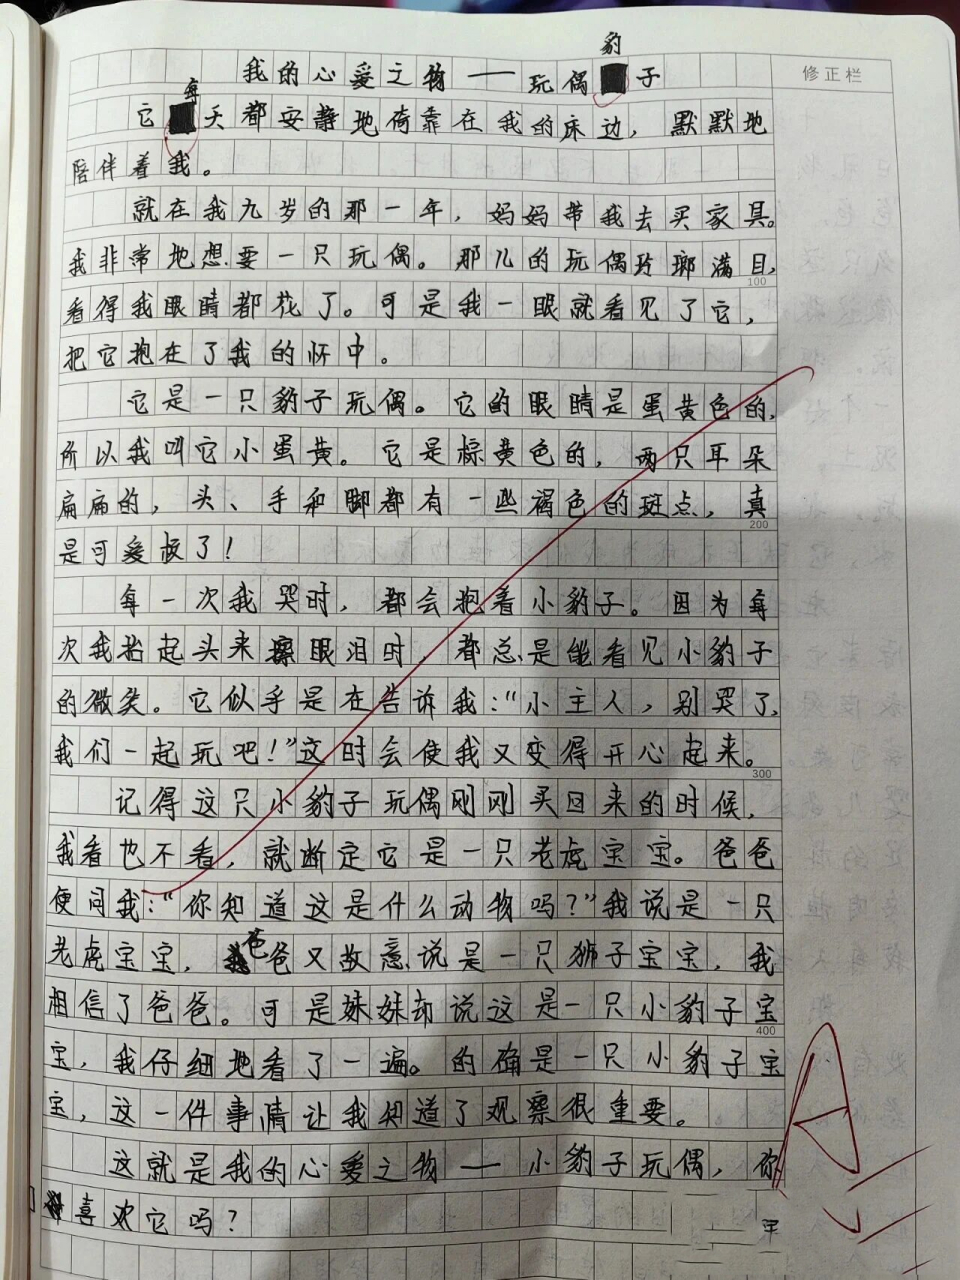 修正栏
我的心爱之物——玩偶豹子
它每天都安静地倚靠在我的床边，默默地
陪伴着我。
就在我九岁的那一年，妈妈带我去买家具。
我非常地想要一只玩偶。那儿的玩偶玲琅满目，
100
看得我眼睛都花了。可是我一眼就看见了它，
把它抱在了我的怀中。
它是一只豹子玩偶。它的眼睛是蛋黄色的，
所以我叫它小蛋黄。它是棕黄色的，两只耳朵
扁扁的，头、手和脚都有一些褐色的斑点，真
200
是可爱极了！
每一次我哭时，都会抱着小豹子。因为每
次我抬起头来擦眼泪时，都总是能看见小豹子
的微笑。它似乎是在告诉我：“小主人，别哭了，
我们一起玩吧！”这时会使我又变得开心起来。
300
记得这只小豹子玩偶刚刚买回来的时候，
我看也不看，就断定它是一只老虎宝宝。爸爸
便问我：“你知道这是什么动物吗？”我说是一只
老虎宝宝，爸爸又故意说是一只狮子宝宝，我
相信了爸爸。可是妹妹却说这是一只小豹子宝
400
宝，我仔细地看了一遍。的确是一只小豹子宝
宝，这一件事情让我知道了观察很重要。
这就是我的心爱之物——小豹子玩偶，你
喜欢它吗？
A